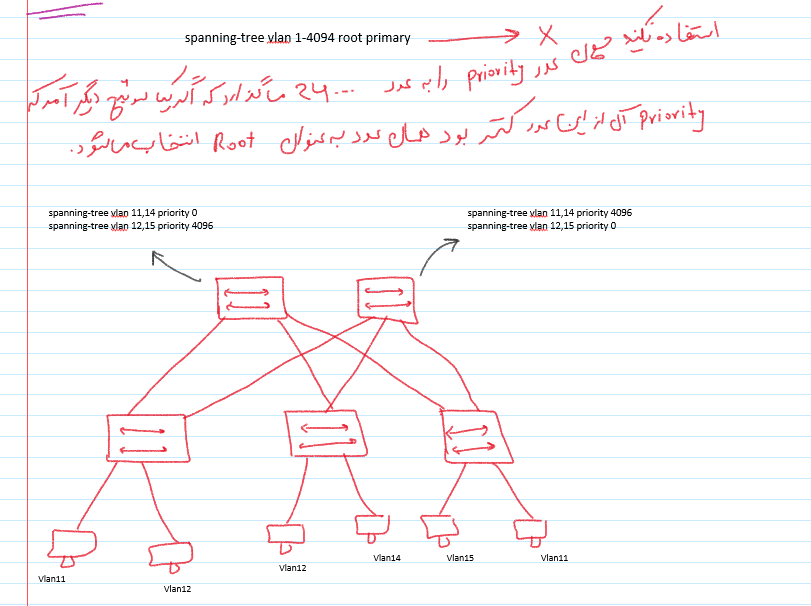 spanning-tree vlan 1-4094 root primary → X استفاده نکنید چون عدد
priority را به عدد 24... میگذارد که اگر یک سوئیچ دیگر آمد که
priority آن از این عدد کمتر بود همان عدد به عنوان Root انتخاب میشود.
spanning-tree vlan 11,14 priority 0
spanning-tree vlan 12,15 priority 4096
spanning-tree vlan 11,14 priority 4096
spanning-tree vlan 12,15 priority 0
Vlan11
Vlan12
Vlan12
Vlan14
Vlan15
Vlan11